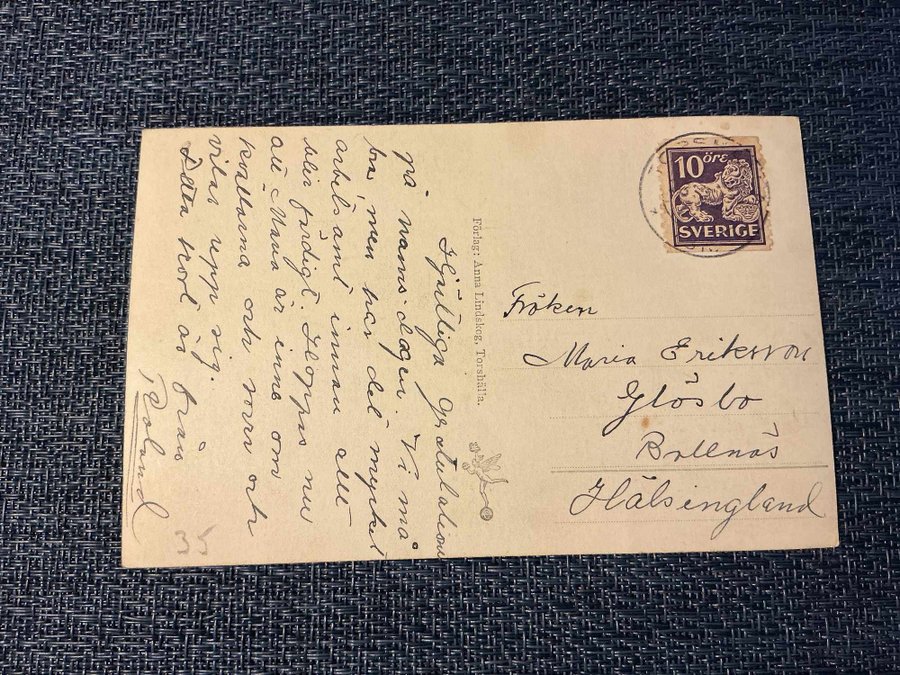 Hjärtliga gratulationer
på namns-dagen. Vi må
bra, men har det mycket
arbetsamt innan allt
blir färdigt. Hoppas nu
att Maria är inne om
kvällarna och sover och
vilar upp sig.
Detta kort är från
Roland
35
Förlag: Anna Lindskog, Torshälla.
10 öre
SVERIGE
Fröken
Maria Eriksson
Glösbo
Bollnäs
Hälsingland